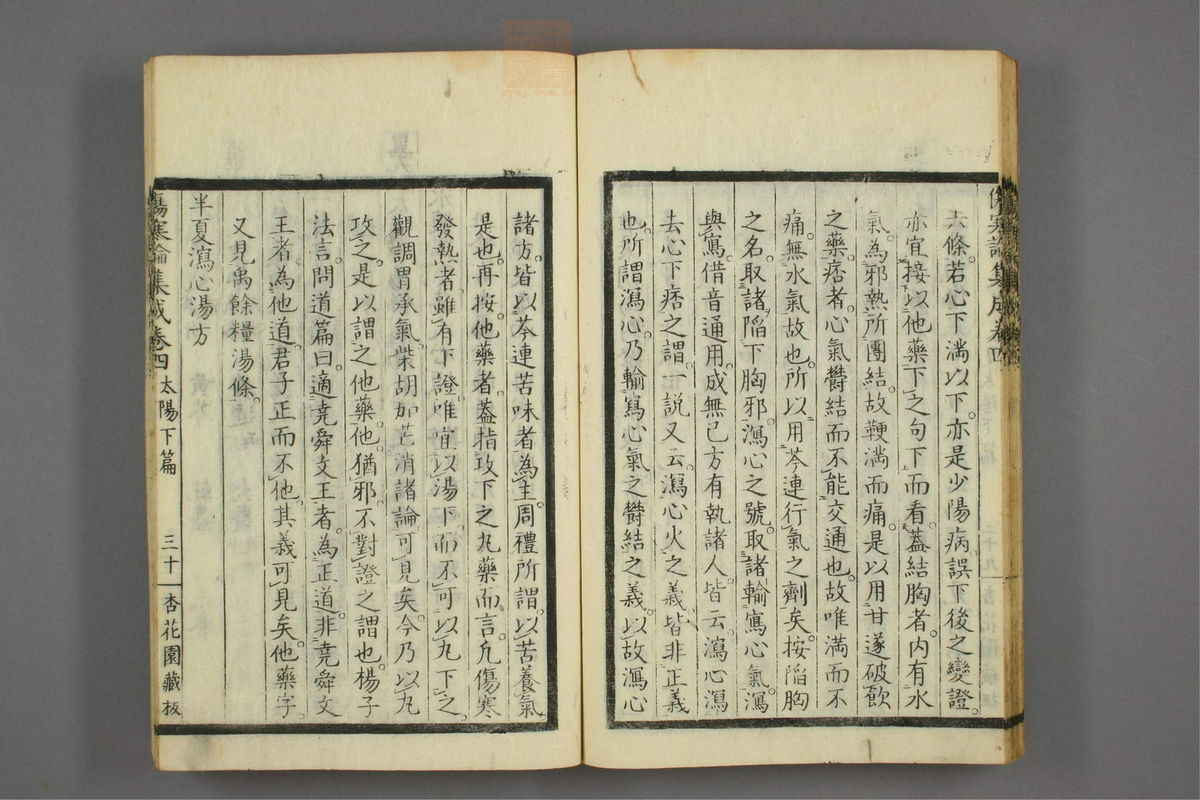 傷寒論集成卷四
六條。若心下滿以下。亦是少陽病。誤下後之變證。
亦宜接以他藥下之句下而看。蓋結胸者。內有水
氣。為邪熱所團結。故鞕滿而痛。是以用甘遂破飲
之藥。痞者。心氣鬱結而不能交通也。故唯滿而不
痛。無水氣故也。所以用芩連行氣之劑矣。按陷胸
之名。取諸陷下胸邪。瀉心之號。取諸輸寫心氣。瀉
與寫。借音通用。成無已方有執諸人。皆云。瀉心瀉
去心下痞之謂。一說又云。瀉心火之義。皆非正義
也。所謂瀉心。乃輸寫心氣之鬱結之義。以故瀉心
諸方。皆以芩連苦味者為主。周禮所謂。以苦養氣
是也。再按。他藥者。蓋指攻下之丸藥而言。凡傷寒
發熱者。雖有下證。唯宜以湯下。而不可以丸下之。
觀調胃承氣。柴胡加芒消諸論可見矣。今乃以丸
攻之。是以謂之他藥。他。猶邪。不對證之謂也。楊子
法言。問道篇曰。適堯舜文王者。為正道。非堯舜文
王者。為他道。君子正而不他。其義可見矣。他藥字。
又見禹餘糧湯條。
半夏瀉心湯方
傷寒論集成卷四 太陽下篇 三十 杏花園藏板